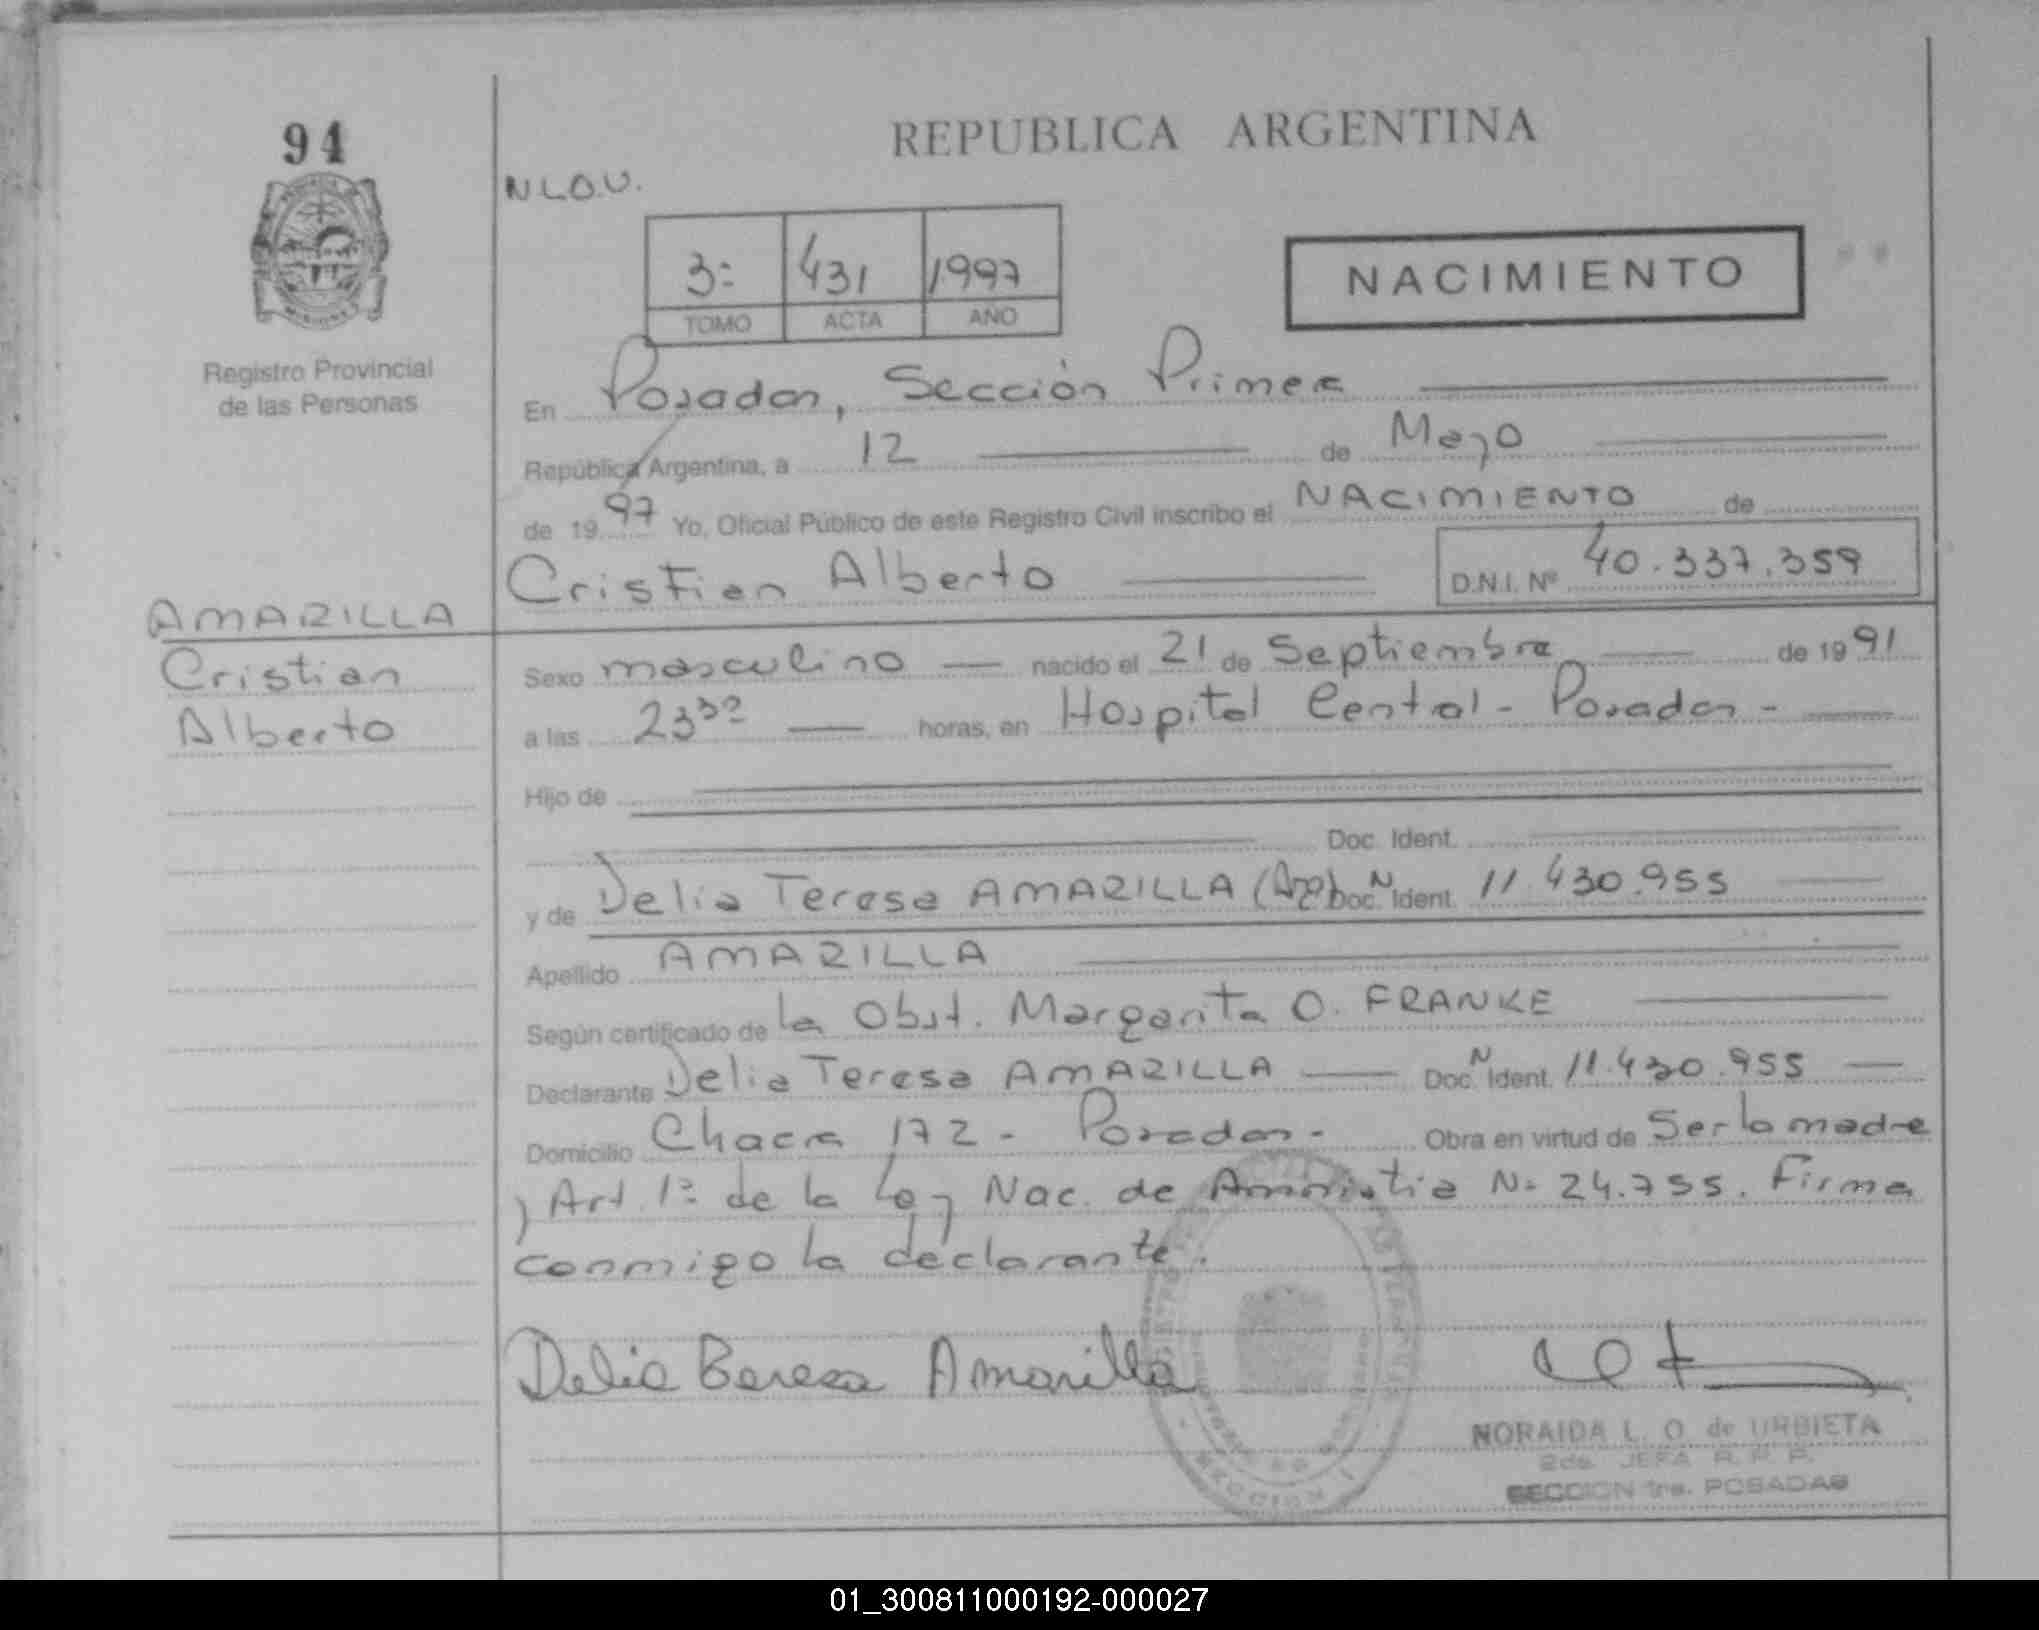 94
REPUBLICA ARGENTINA
N L O. U.
3º 431 1997
TOMO ACTA AÑO
NACIMIENTO
Registro Provincial
de las Personas
En Posadas, Sección Primera
República Argentina, a 12 de Mayo
de 19 97 Yo, Oficial Público de este Registro Civil inscribo el NACIMIENTO de
Cristian Alberto D.N.I. Nº 40.337.359
AMARILLA
Cristian
Alberto
Sexo masculino nacido el 21 de Septiembre de 19 91
a las 23³⁰ horas, en Hospital Central - Posadas -
Hijo de
Doc. Ident.
y de Delia Teresa AMARILLA (Arg) Doc. N Ident. 11.430.955
Apellido AMARILLA
Según certificado de la Obst. Margarita O. FRANKE
Declarante Delia Teresa AMARILLA Doc. N Ident. 11.430.955
Domicilio Chacra 172 - Posadas - Obra en virtud de Ser la madre
y Art. 1º de la Ley Nac. de Amnistia Nº 24.755. Firma
conmigo la declarante.
Delia Teresa Amarilla
NORAIDA L. O. de URBIETA
2da. JEFA R. P. P.
SECCION 1ra. POSADAS
01_300811000192-000027